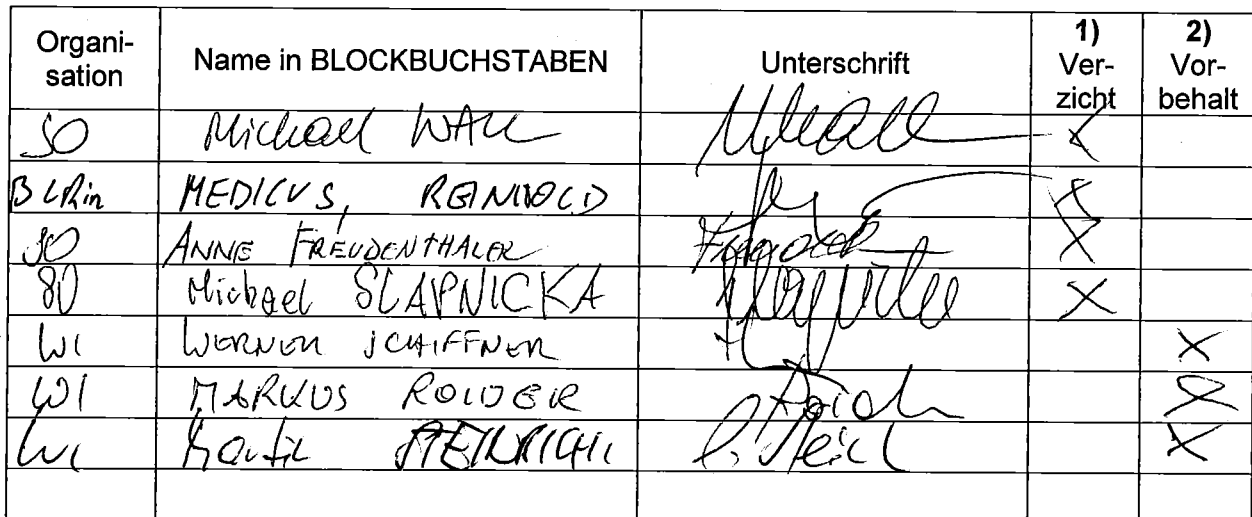 Organi-
sation
Name in BLOCKBUCHSTABEN
Unterschrift
1)
Ver-
zicht
2)
Vor-
behalt
SO Michael WALL X
BLRin MEDICUS, REINHOLD X
SO ANNE FREUDENTHALER X
SO Michael SLAPNICKA X
WI WERNER SCHIFFNER X
WI MARKUS ROIDER X
WI X